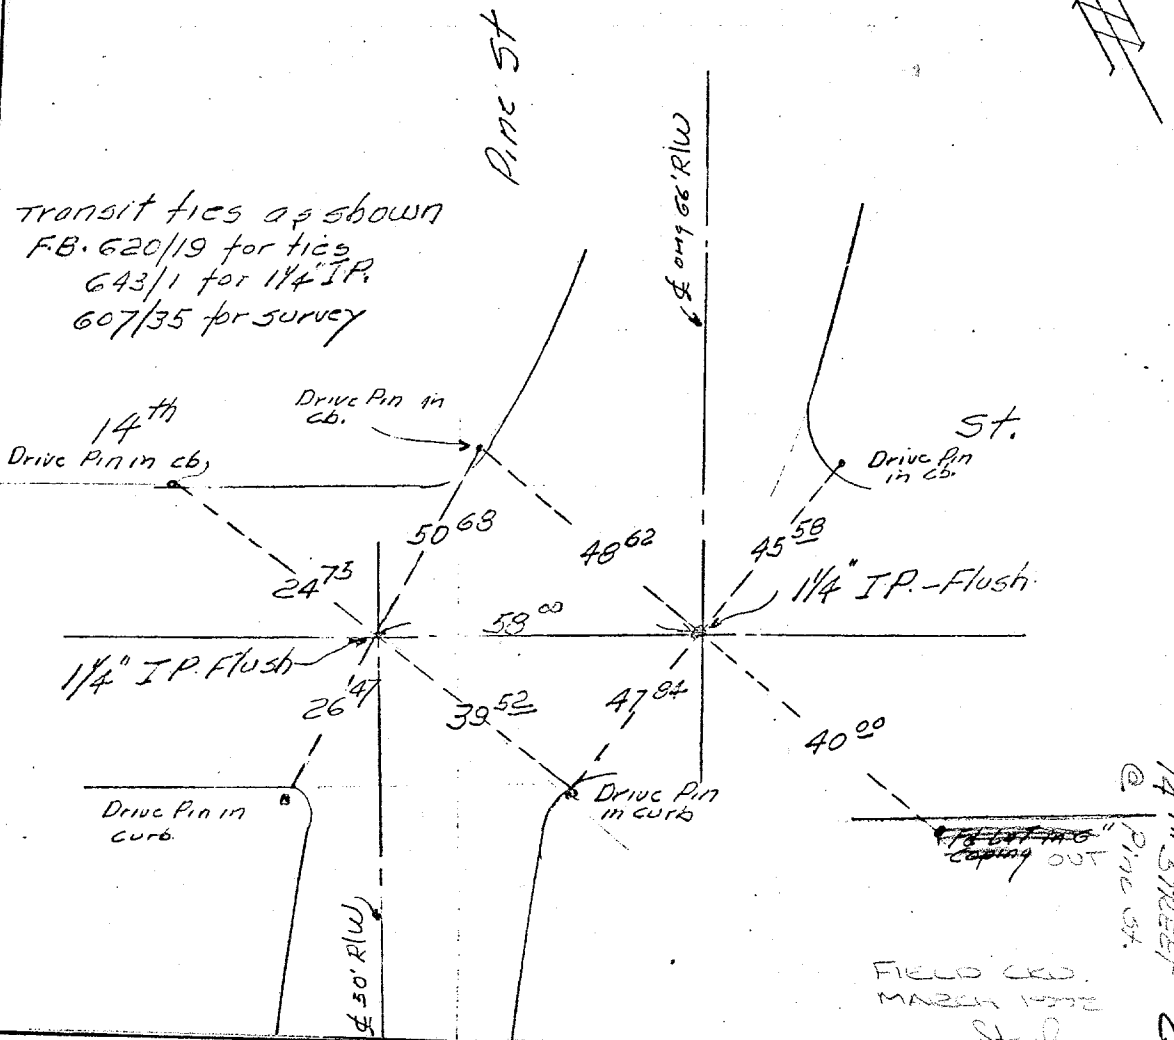 Pine St
℄ orig 66' R/W
Transit ties as shown
F.B. 620/19 for ties
643/1 for 1¼" I.P.
607/35 for survey
14th
St.
Drive Pin in cb.
Drive Pin in
cb.
Drive Pin
in cb.
50 68
48 62
45 58
24 73
58 00
1¼" I.P. - Flush
1¼" I.P. Flush
26 47
39 52
47 84
40 00
Drive Pin in
curb
Drive Pin
in curb
coping OUT
℄ 30' R/W
14th STREET
@ Pine St.
FIELD CKD.
MARCH